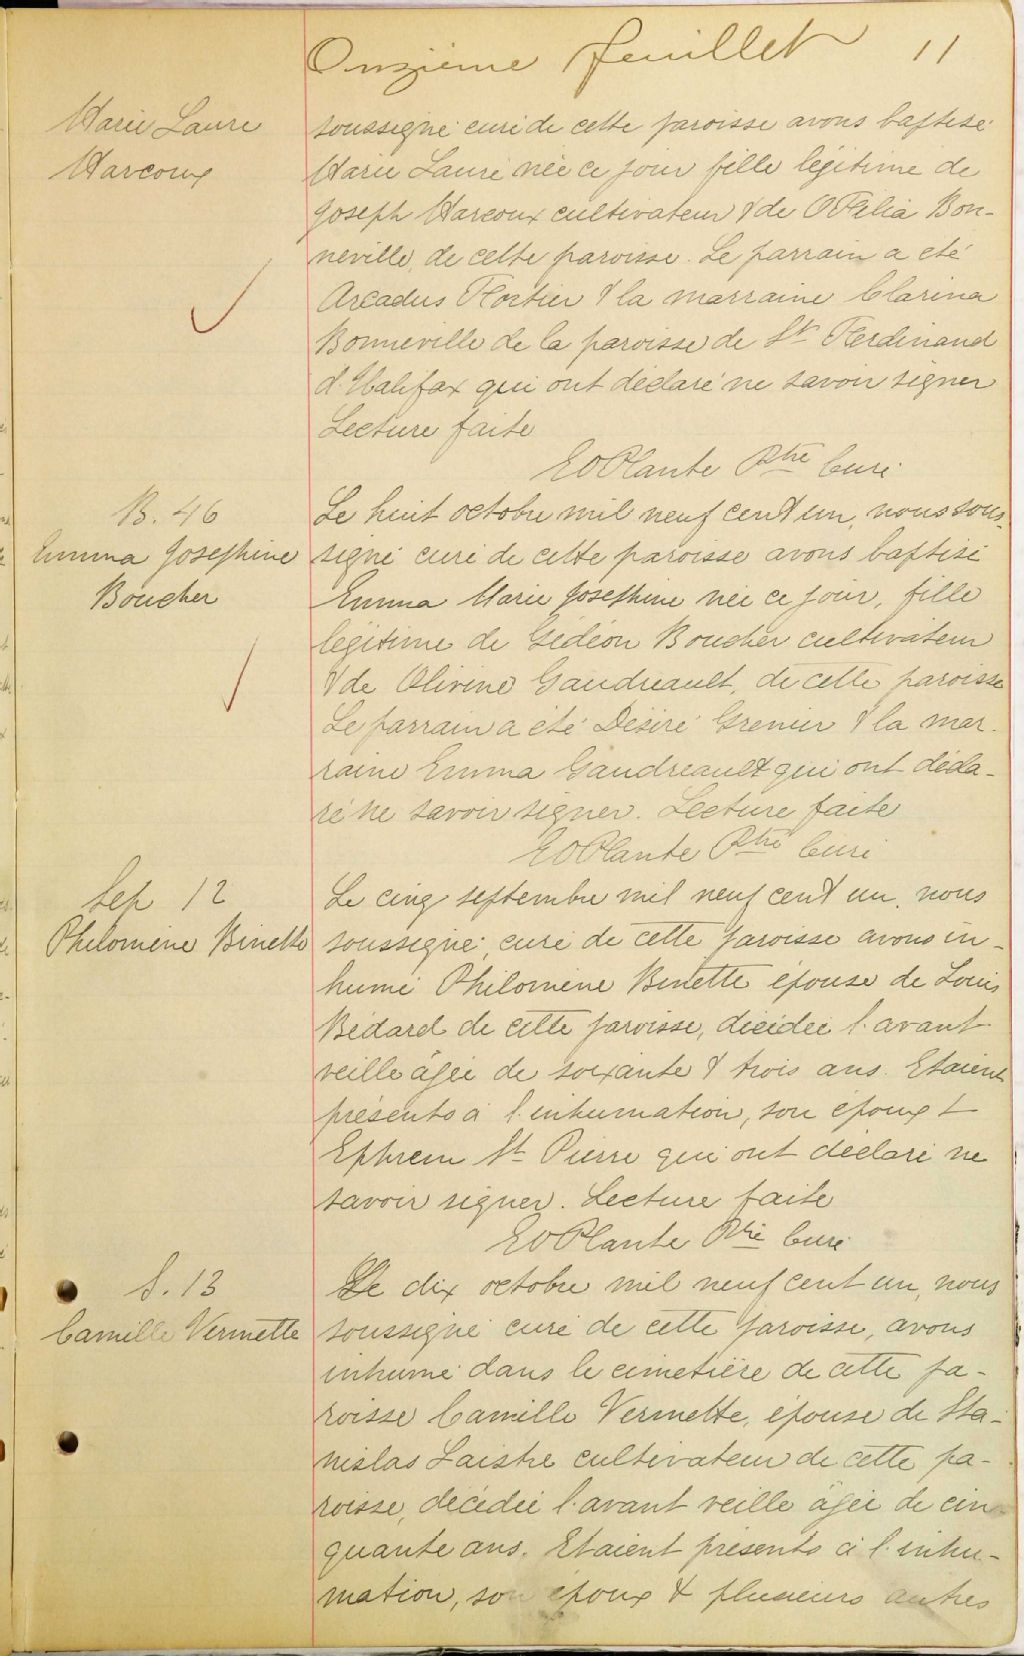 Onzième feuillet 11
Marie Laure
Marcoux
soussigné curé de cette paroisse avons baptisé
Marie Laure née ce jour fille légitime de
Joseph Marcoux cultivateur & de Ofélia Bon-
neville, de cette paroisse. Le parrain a été
Arcadus Fortier & la marraine Clarina
Bonneville de la paroisse de St Ferdinand
d'Halifax qui ont déclaré ne savoir signer
Lecture faite
EOPlante Ptre Curé
B. 46
Emma Josephine
Boucher
Le huit octobre mil neuf cent un, nous sous-
signé curé de cette paroisse avons baptisé
Emma Marie Josephine née ce jour, fille
légitime de Gédéon Boucher cultivateur
& de Olivine Gaudreault, de cette paroisse
Le parrain a été Désiré Grenier & la mar-
raine Emma Gaudreault qui ont décla-
ré ne savoir signer. Lecture faite
EOPlante Ptre Curé
Sep 12
Philomène Binette
Le cinq septembre mil neuf cent un, nous
soussigné, curé de cette paroisse avons in-
humé Philomène Binette épouse de Louis
Bédard de cette paroisse, décédée l'avant
veille âgée de soixante & trois ans. Etaient
présents à l'inhumation, son époux &
Ephrem St Pierre qui ont déclaré ne
savoir signer. Lecture faite
EOPlante Ptre Curé
S. 13
Camille Vermette
Le dix octobre mil neuf cent un, nous
soussigné curé de cette paroisse, avons
inhumé dans le cimetière de cette pa-
roisse Camille Vermette, épouse de Sta-
nislas Laistre cultivateur de cette pa-
roisse, décédée l'avant veille âgée de cin-
quante ans. Etaient présents à l'inhu-
mation, son époux & plusieurs autres